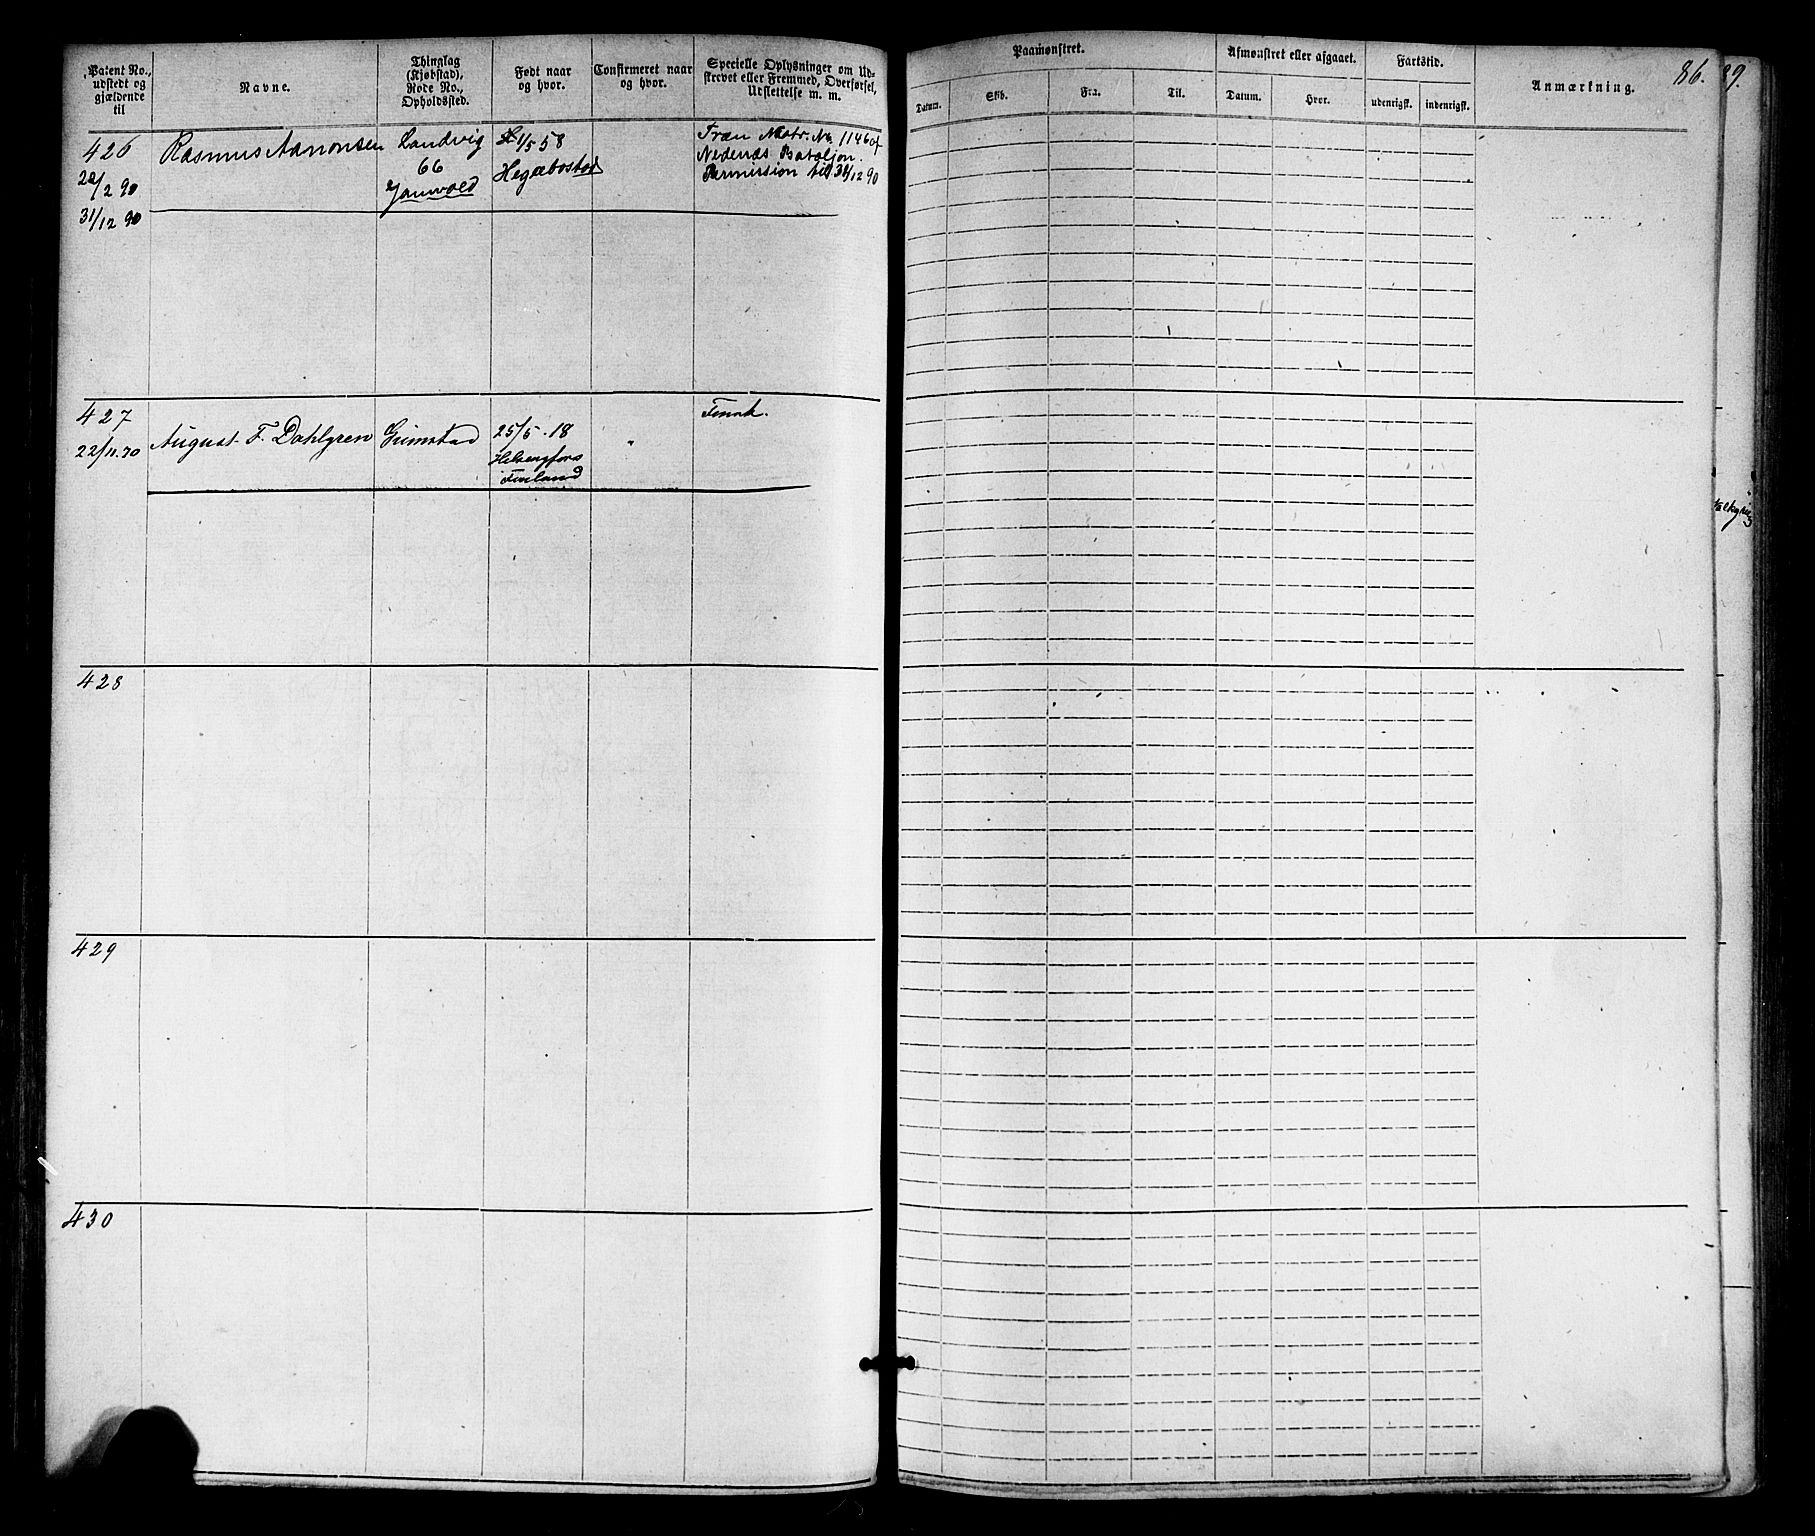 Patent No., udstedt og gjældende til
Navne.
Thinglag (Kjøbstad), Rode No., Opholdssted.
Født naar og hvor.
Confirmeret naar og hvor.
Specielle Oplysninger om Udskrevet eller Fremmed, Overførsel, Udslettelse m. m.
Paamønstret.
Datum.
Skib.
Fra.
Til.
Afmønstret eller afgaaet.
Datum.
Hvor.
Fartstid.
udenrigsk.
indenrigsk.
Anmærkning.
86.
9.
426
Rasmus Aanonsen
Landvig
1/5 58
Træn Matr. No. 1146 af
66
Hegebostad
Nedenæs Bataljon.
/2 90
Permission til 31/12 90
31/12 90
427
August F. Dahlgren
Grimstad
25/5 - 18
"
Finsk.
22/11.70
Helsengfors
Finland
428
429
430